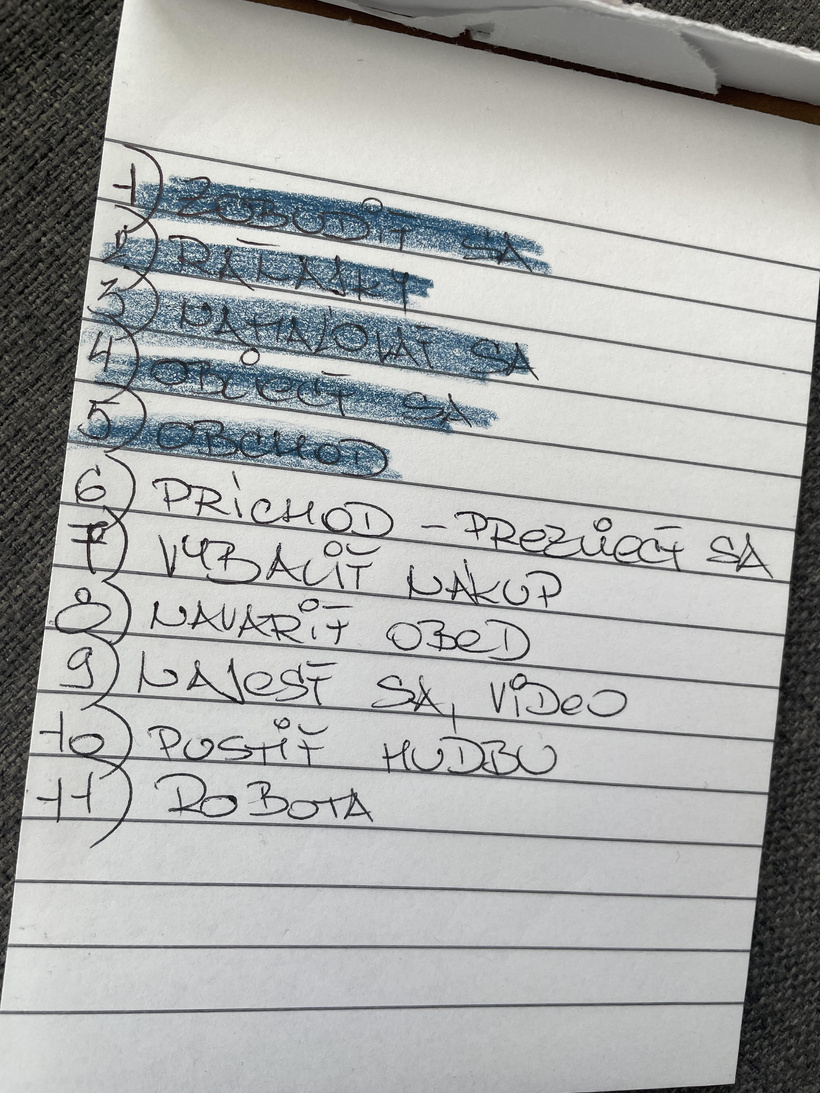 1) ZOBUDIŤ SA
2) RAŇAJKY
3) NAMAĽOVAŤ SA
4) OBLIECŤ SA
5) OBCHOD
6) PRÍCHOD - PREZLIECŤ SA
7) VYBALIŤ NÁKUP
8) NAVARIŤ OBED
9) NAJESŤ SA, VIDEO
10) PUSTIŤ HUDBU
11) ROBOTA